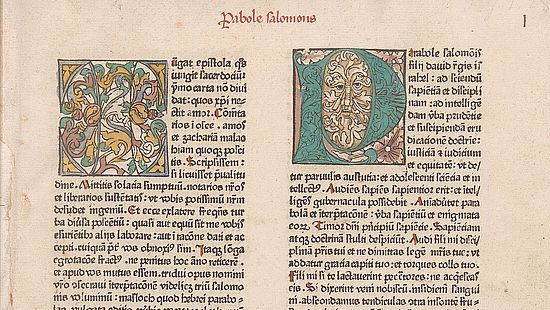 Pabole salomonis
1
ūgat epistola qͦs
iungit sacerdociū
ymo carta nō diui
dat: quos xp̄i ne-
ctit amor. Cōmēta
rios i osee. amos
et zachariā malac
hiam quoqꝫ posci
tis. Scripsissem:
si licuisset p̄ualitu
dine. Mittitis solacia sumptuū. notarios nr̄os
et librarios sustētatis: vt vobis potissimū nr̄m
desudet ingeniū. Et ecce ex latere freq̄ns tur
ba diūsa poscētiū: quasi aut equū sit me vobis
esuriētibꝰ alijs laborare: aut i racōne dati et ac-
cepti. cuiqͣ p̄t vos obnoxiꝰ sim. Itaqꝫ lōga
egrotacōne fractꝰ. ne penitus hoc āno reticerē. et
apud vos mutus essem. tridui opus nomini
vr̄o osecraui. interp̄tacōnē videlicꝫ triū salomo
nis voluminū: masloth quod hebrei parabo-
arabole salomōis
filij dauid rēgis is
rahel: ad sciendū
sapiētiā et discipli
nam: ad intelligē
dam v̄ba prudētie
et suscipiendā eru
diacōem doctrie:
iusticiā ⁊ iudicium
et equitatē: vt de-
tur paruulis astutia: et adolescenti sciēcia et in-
tellectꝰ. Audiēs sapiēs sapientior erit: et itel-
ligēs gubernacula possidebit. Aīaduertet para
bolā et iterp̄tacōnē: v̄ba sapientiū et enigmata
eorꝝ. Timor dn̄i pn̄cipiū sapiēcie. Sapienciam
atqꝫ doctrinā stulti despiciūt. Audi fili mi disci
plinā pris tui et ne dimittas legē mr̄is tue: vt
addatur gracia capiti tuo: et torques collo tuo.
Fili mi si te lactauerint pctōres: ne acquiescas
eis. Si dixerint veni nobiscū. insidiem̄ sangui
ni. abscondamus tendiculas otra insontē frus-